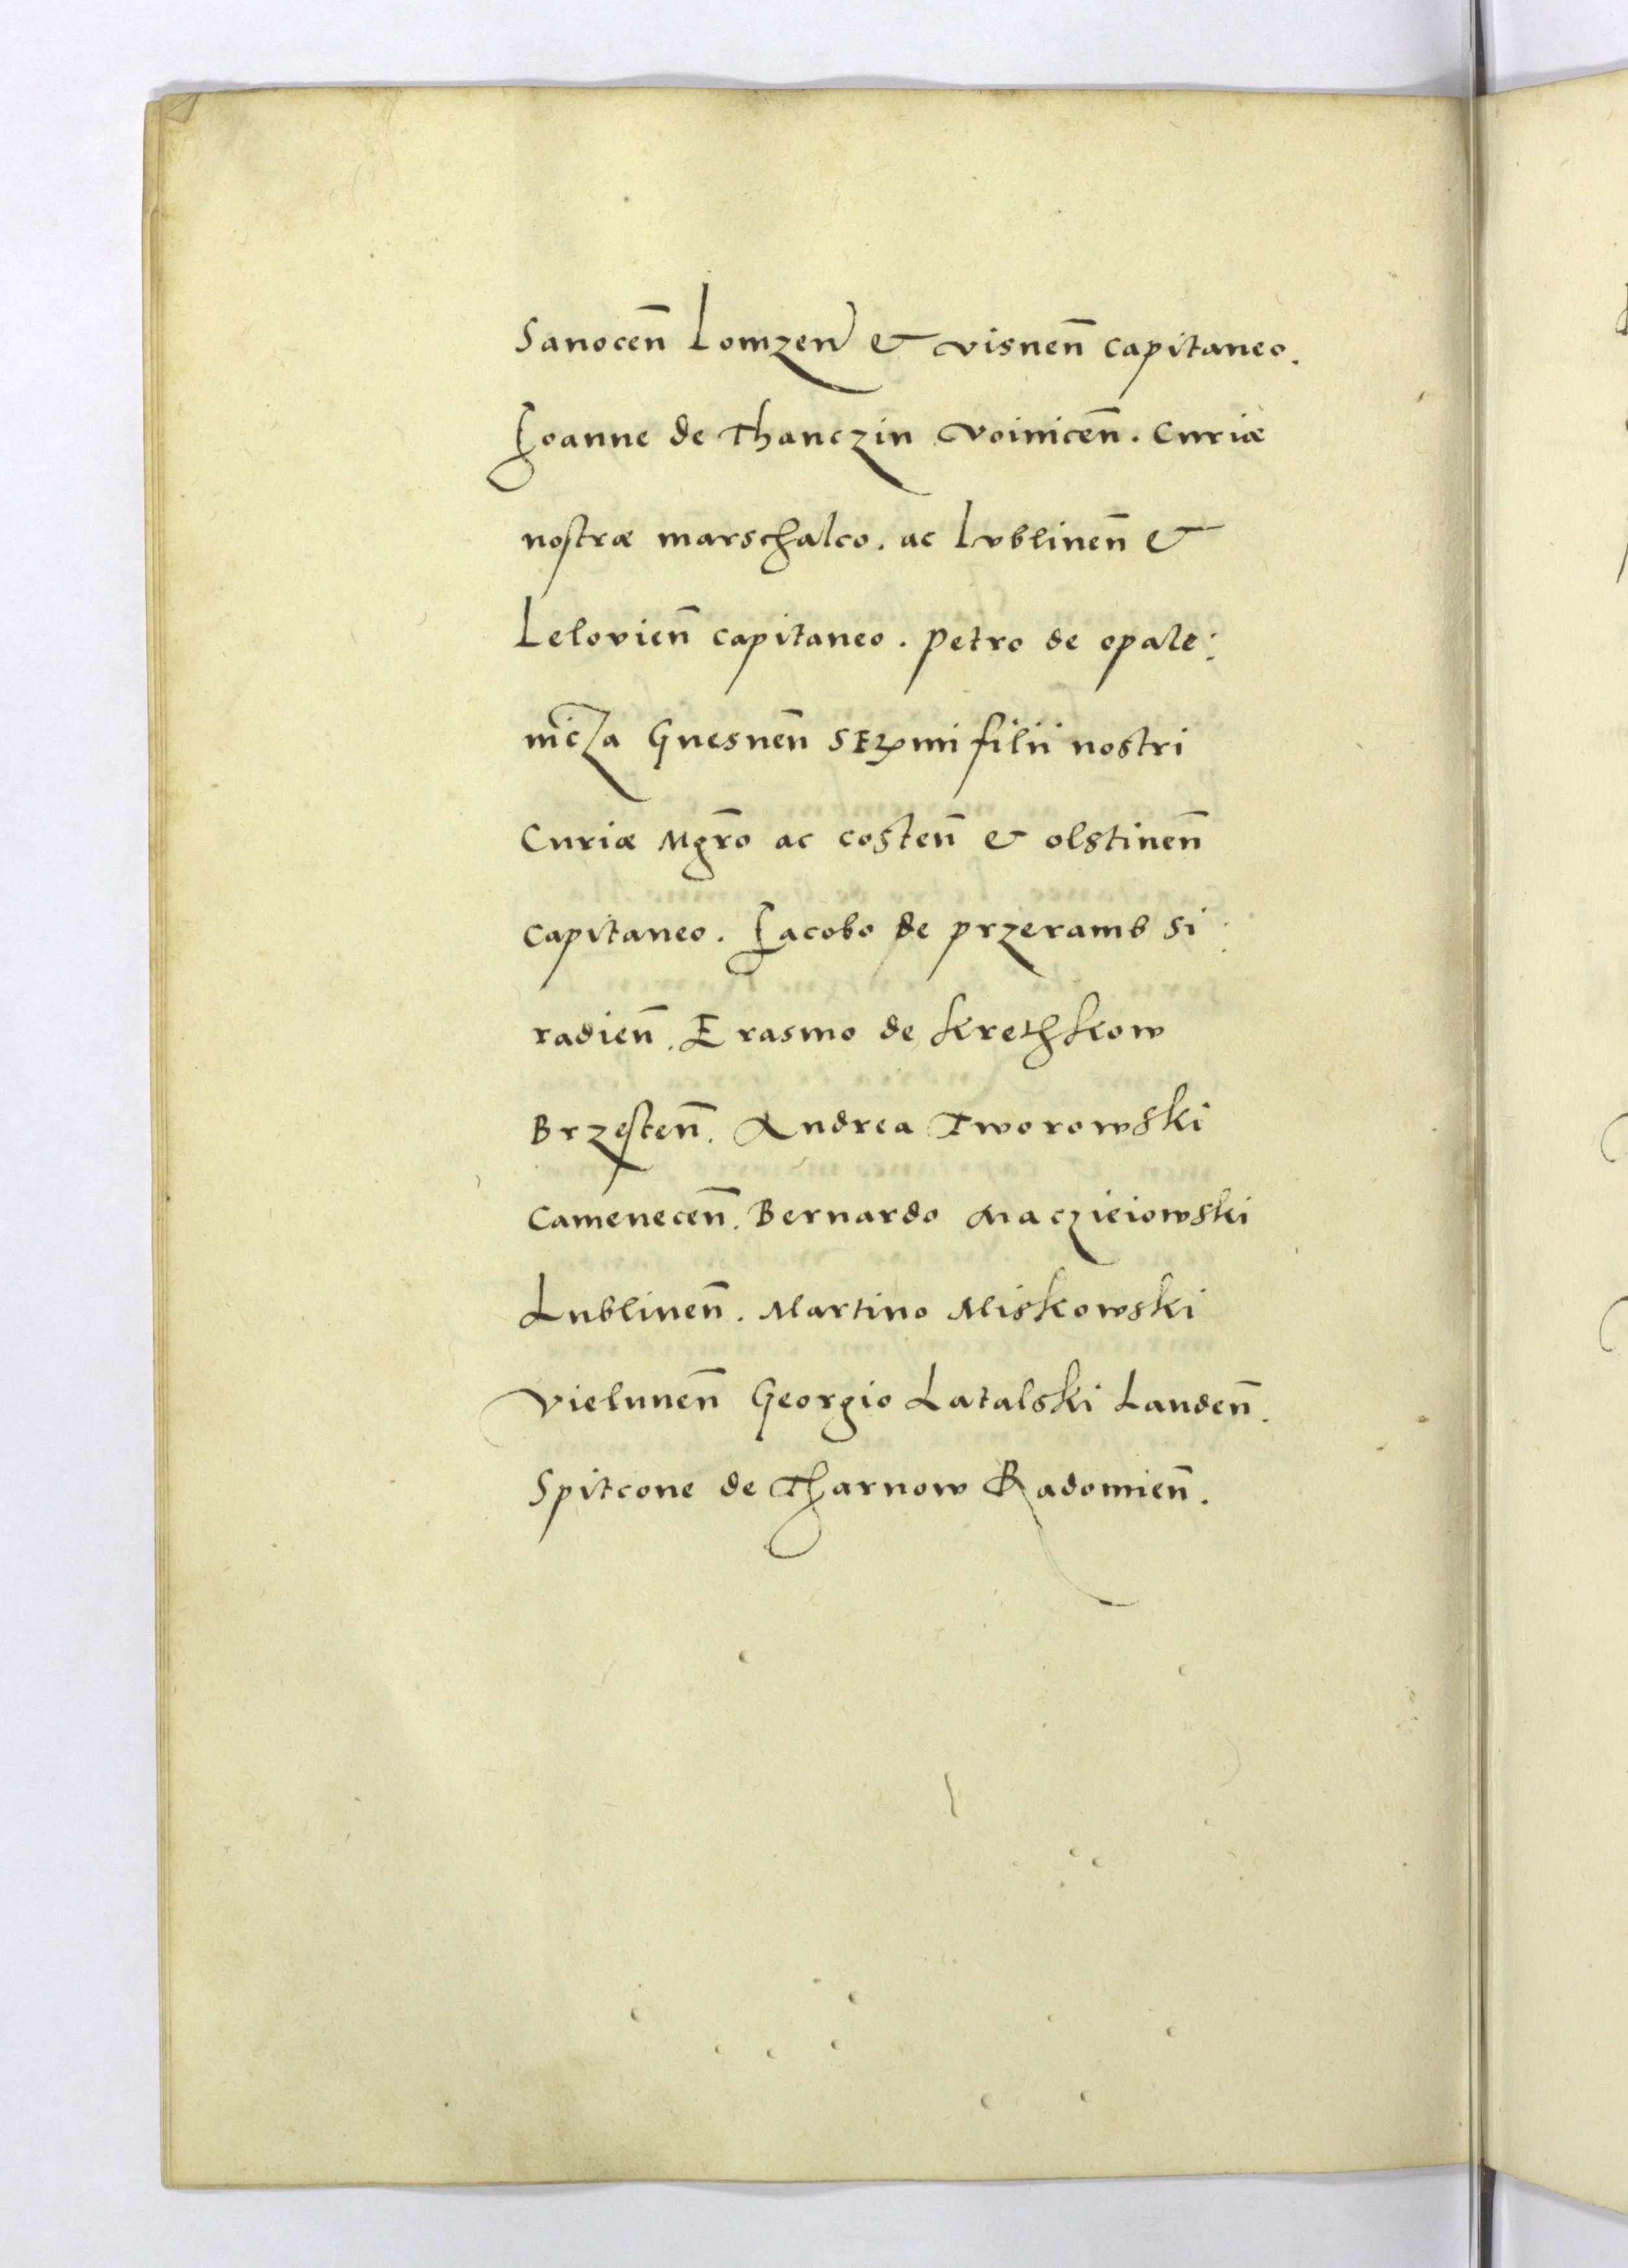 Sanocen̄ Lomzen̄ & visnen̄ capitaneo.
Ioanne de Thanczin voinicen̄. Curiæ
nostræ marschalco. ac Lvblinen̄ &
Lelovien̄ capitaneo. Petro de opale:
nicza Gnesnen̄ SERmi filii nostri
Curiæ Mgr̄o ac costen̄ & olstinen̄
capitaneo. Iacobo de przeramb Si:
radien̄. Erasmo de Krethkow
Brzesten̄. Andrea Tworowski
Camenecen̄. Bernardo Maczieiowski
Lublinen̄. Martino Miskowski
Vielunen̄ Georgio Latalski Landen̄.
Spitcone de Tharnow Radomien̄.